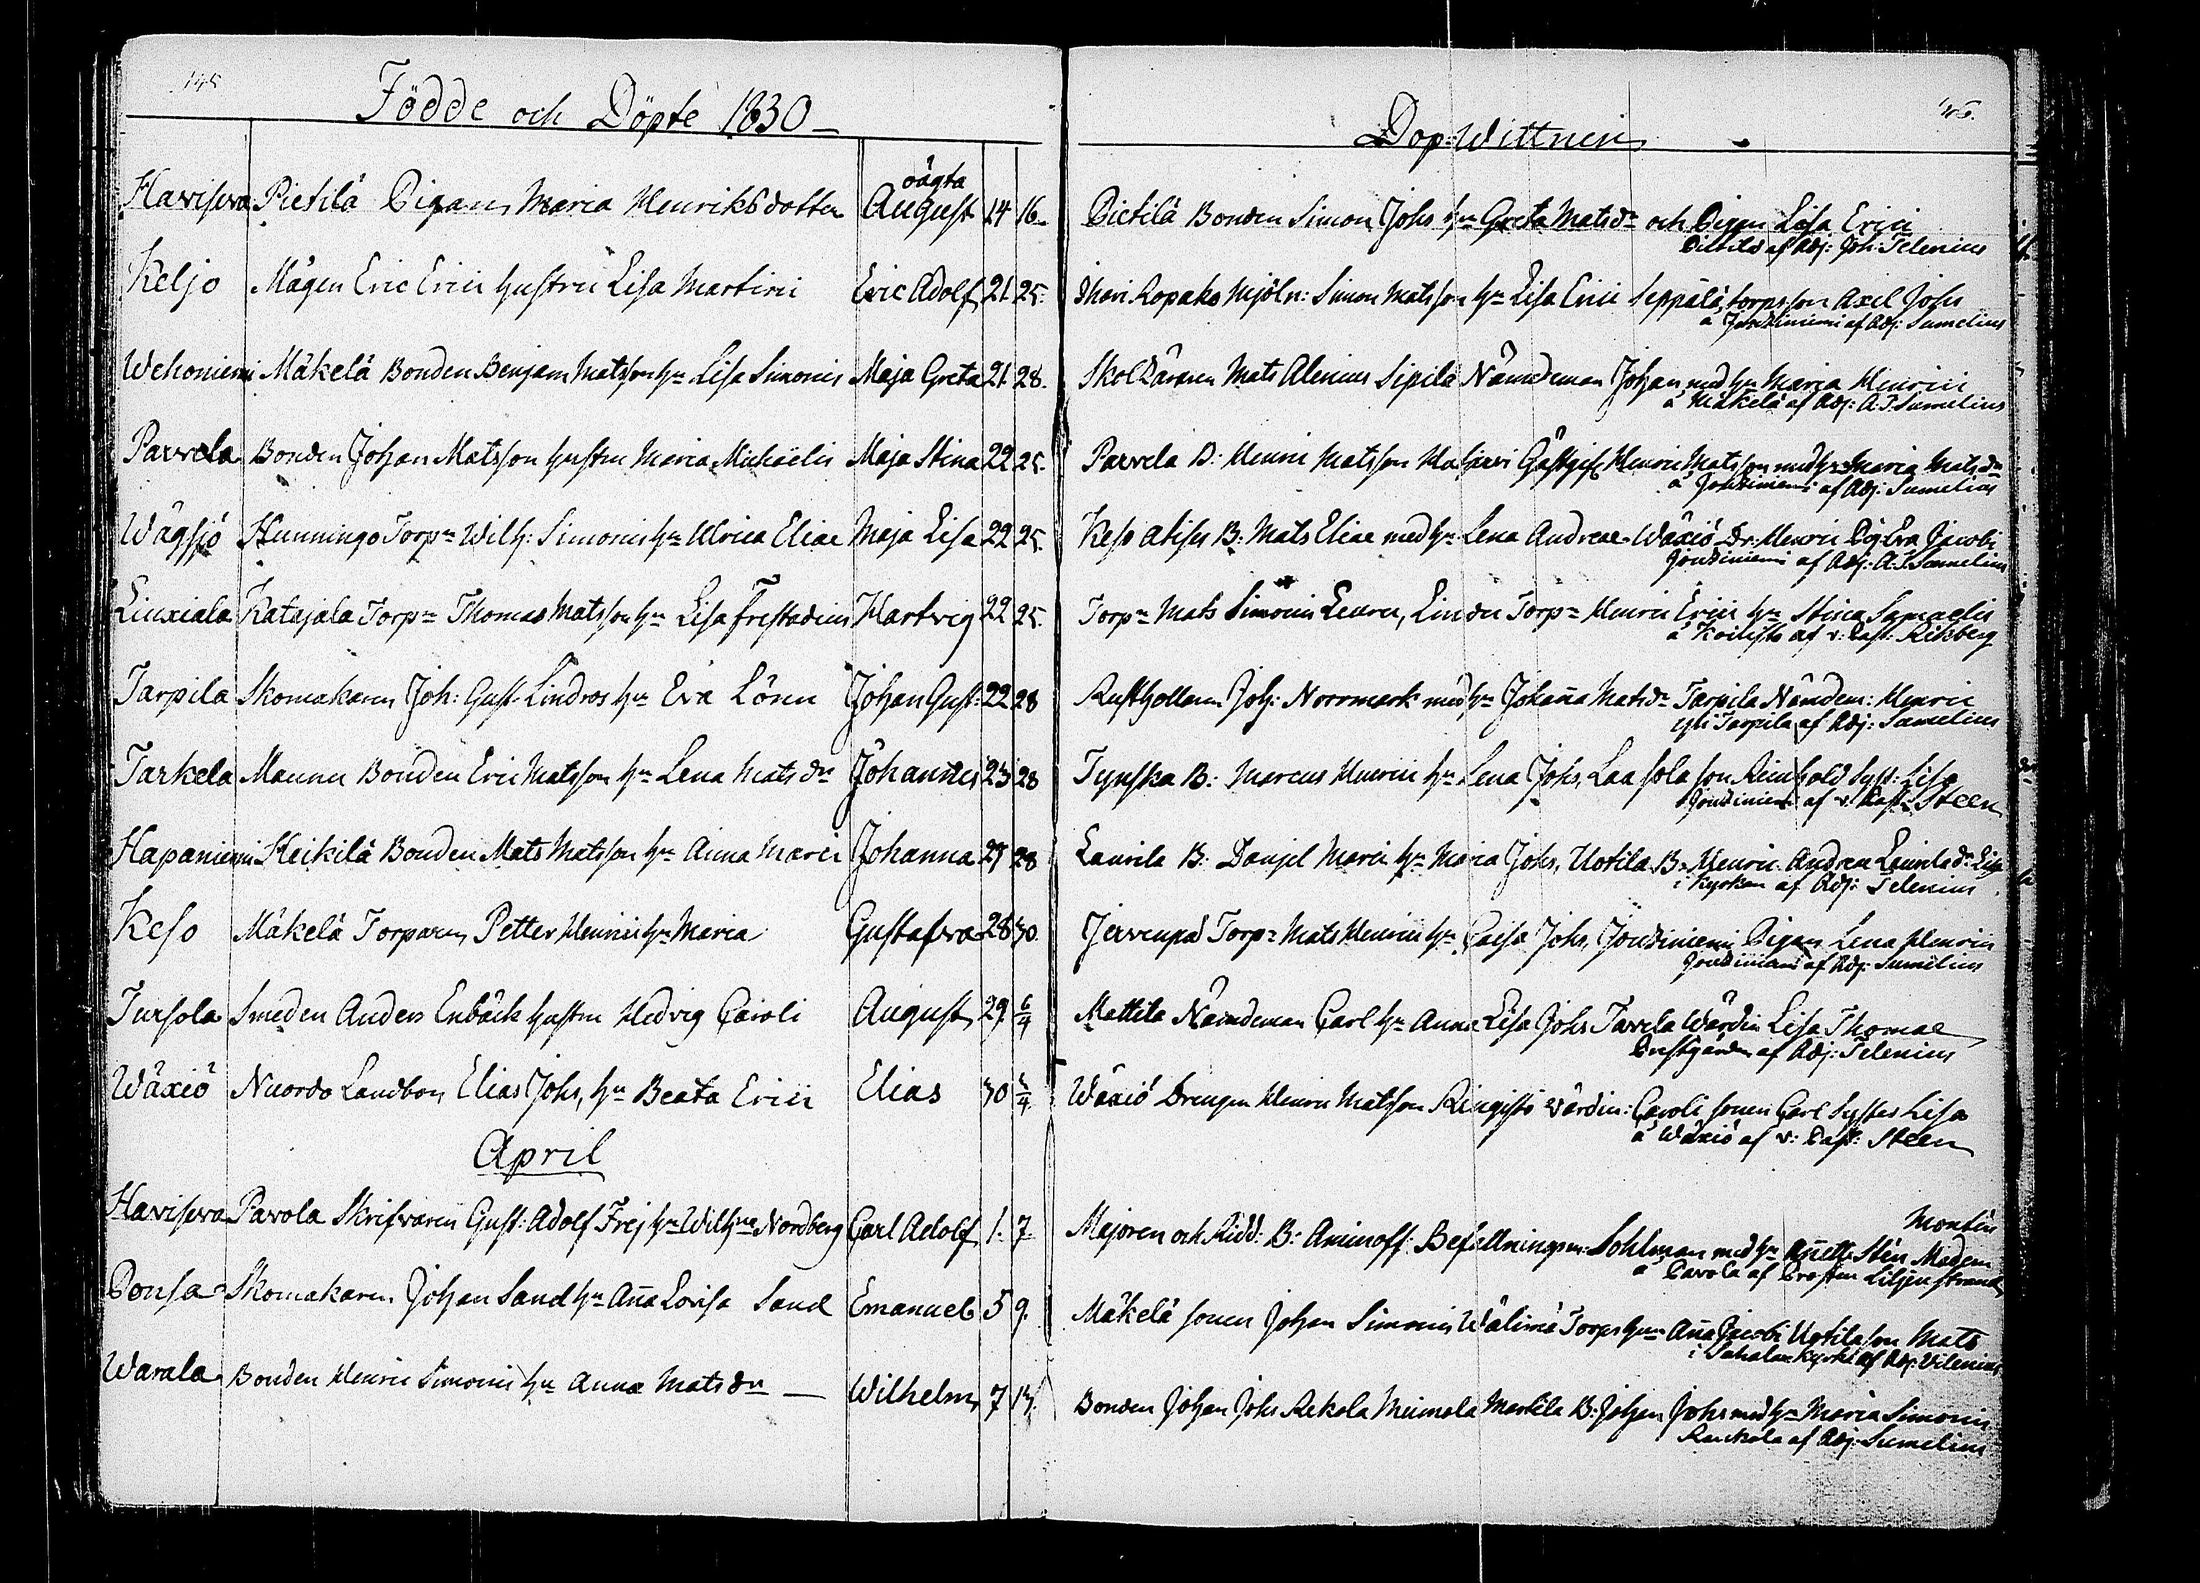 145
Födde och Döpte 1830
Haviseva Pietilä Pigan Maria Henriksdotter oägta August 14 16
Keljo Mågen Eric Erici hustru Lisa Martini Eric Adolf 21 25.
Wehoniemi Mäkelä Bonden Benjam Matsson hn Lisa Simonis Maja Greta 21. 28.
Pavvela Bonden Johan Matsson hustru Maria Michaëlis Maja Stina 22 25.
Wägsjö Hunningo Torpn Wilh: Simonis hn Ulrica Eliae Maja Lisa 22 25.
Liuxiala Katajala Torpn Thomas Matsson hn Lisa Frestadius Hartvig 22 25.
Tarpila Skomakaren Joh: Gust: Lindros hn Eva Lönn Johan Gust: 22 28
Tarkela Maunu Bonden Eric Matsson hn Lena Matsdr Johannes 23 28
Hapaniemi Heikilä Bonden Mats Matsson hn Anna Marci Johanna 27 28
Keso Mäkelä Torparen Petter Henrici hn Maria Gustafva 28 30.
Tursola Smeden Anders Enbäck hustru Hedvig Caroli August 29. 6/4
Wäxiö Nuordo Landbon Elias Johs, hn Beata Erici Elias 30 /4.
April
Havisewa Pavola Skrifvaren Gust: Adolf Frej hn Wilhna Nordberg Carl Adolf 1. 7.
Ponsa Skomakaren Johan Sand hn Aña Lovisa Sand Emanuel 5 9.
Warala Bonden Henric Simonis hn Anna Matsdr — Wilhelm 7
146.
Dop: Wittnen
Pietilä Bonden Simon Johs hn Greta Matsdr och Pigan Lisa Erici
Pietilä af Adj: Joh: Telenius
Ropako Mjöln: Simon Matsson hn Lisa Erici Seppälä torpsson Axel Johs
a Joutiniemi af Adj: Sumelius
Mats Alenius Sipilä Nämdeman Johan med hn Maria Henrici
a Mäkelä af Adj: A. J. Sumelius
Pavvela B: Henric Matsson Gästgif. Henric Matsson med hn Maria Matsdr
a Joutiniemi af Adj: Sumelius
Keso B: Mats Eliae med hn Lena Andreae Wäxiö Dr: Henric Pig Eva Jacobi
Joutiniemi af Adj: A. J. Sumelius
Torpn Mats Simonis Torpn Henric Erici hn Stina Samuelis
a af v: Past:
Rusthollaren Joh: Norrmark med hn Johaña Matsdr Tarpila Nämdem: Henric
Tarpila af Adj: Sumelius
Tynska B: Marcus Henrici hn Lena Johs, Laasola son Reinhold Syst: Lisa
Joutiniemi af v: Past: Steen
Laurila B: Danjel Marci hn Maria Johs, Uotila B: Henric Andreae Laurila dr Lisa
i Kyrkan af Adj: Telenius
Torpn Mats Henrici hn Caisa Johs, Joutiniemi Pigan Lena Henrici
Joutiniemi af Adj: Sumelius
Mattila Nämdeman Carl hn Anna Lisa Johs Tavela Wärdin Lisa Thomae
Prestgården af Adj: Telenius
Wäxiö Drengen Henric Matsson wärdin: Caroli sonen Carl Syster Lisa
a Wäxiö af v: Past: Steen
Montin
Majoren och Ridd: B: Aminoff: Befallningsm: Sohlman med hn Añette Stén Madem
a Pavola af Prosten Liljenstrand
Mäkelä sonen Johan Simonis Wälimä Torps hn Aña Jacobi Uotila son Mats
i Sahalax Kyrka af Adj:
Bonden Johan Johs Rekola Meimola Martila B: Johan Johs med hn Maria Simonis
af Adj: Sumelius